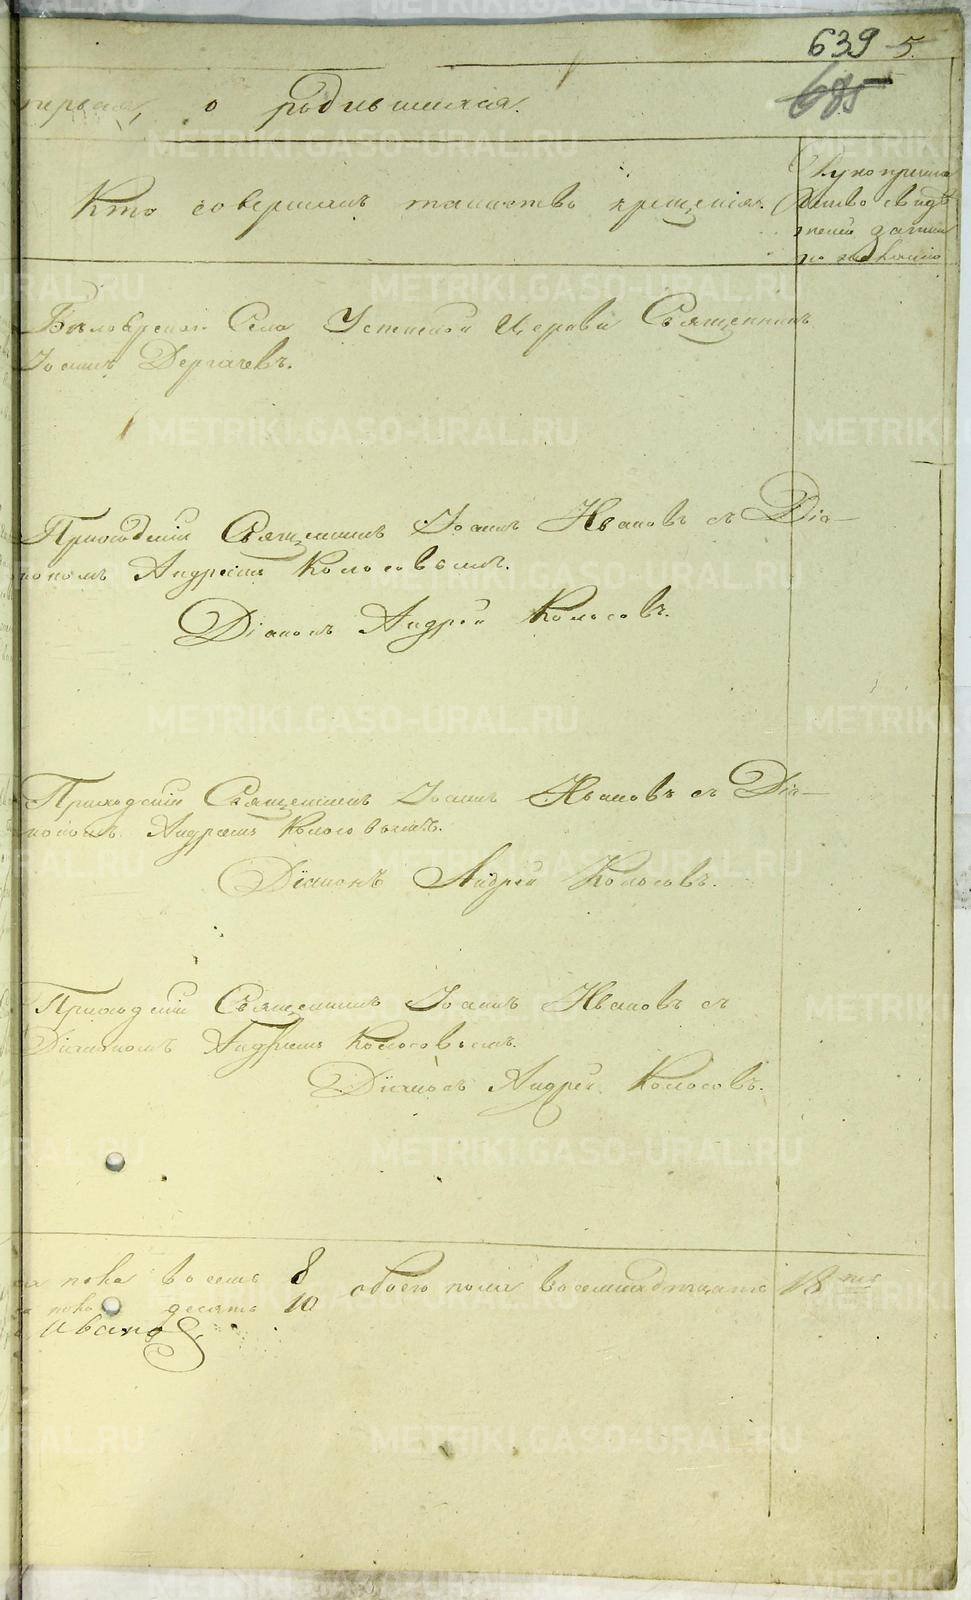 639 5.
685
первая, о родившихся.
Кто совершалъ таинство крещенія.
Рукоприкла
дство свидѣ
телей записи
по желанію
Белоярской Села Успенской Церкви Священникъ
Іоаннъ Дергачевъ.
Приходскій Священникъ Іоаннъ Ивановъ съ Діа-
кономъ Андреемъ Колосовымъ.
Діаконъ Андрей Колосовъ.
Приходскій Священникъ Іоаннъ Ивановъ съ Діа-
кономъ Андреемъ Колосовымъ.
Діаконъ Андрей Колосовъ.
Приходскій Священникъ Іоаннъ Ивановъ съ
Діакономъ Андреемъ Колосовымъ.
Діаконъ Андрей Колосовъ.
пола восемь 8 обоего пола восемнадцать 18ть
пола десять 10
Ивановъ
METRIKI.GASO-URAL.RU